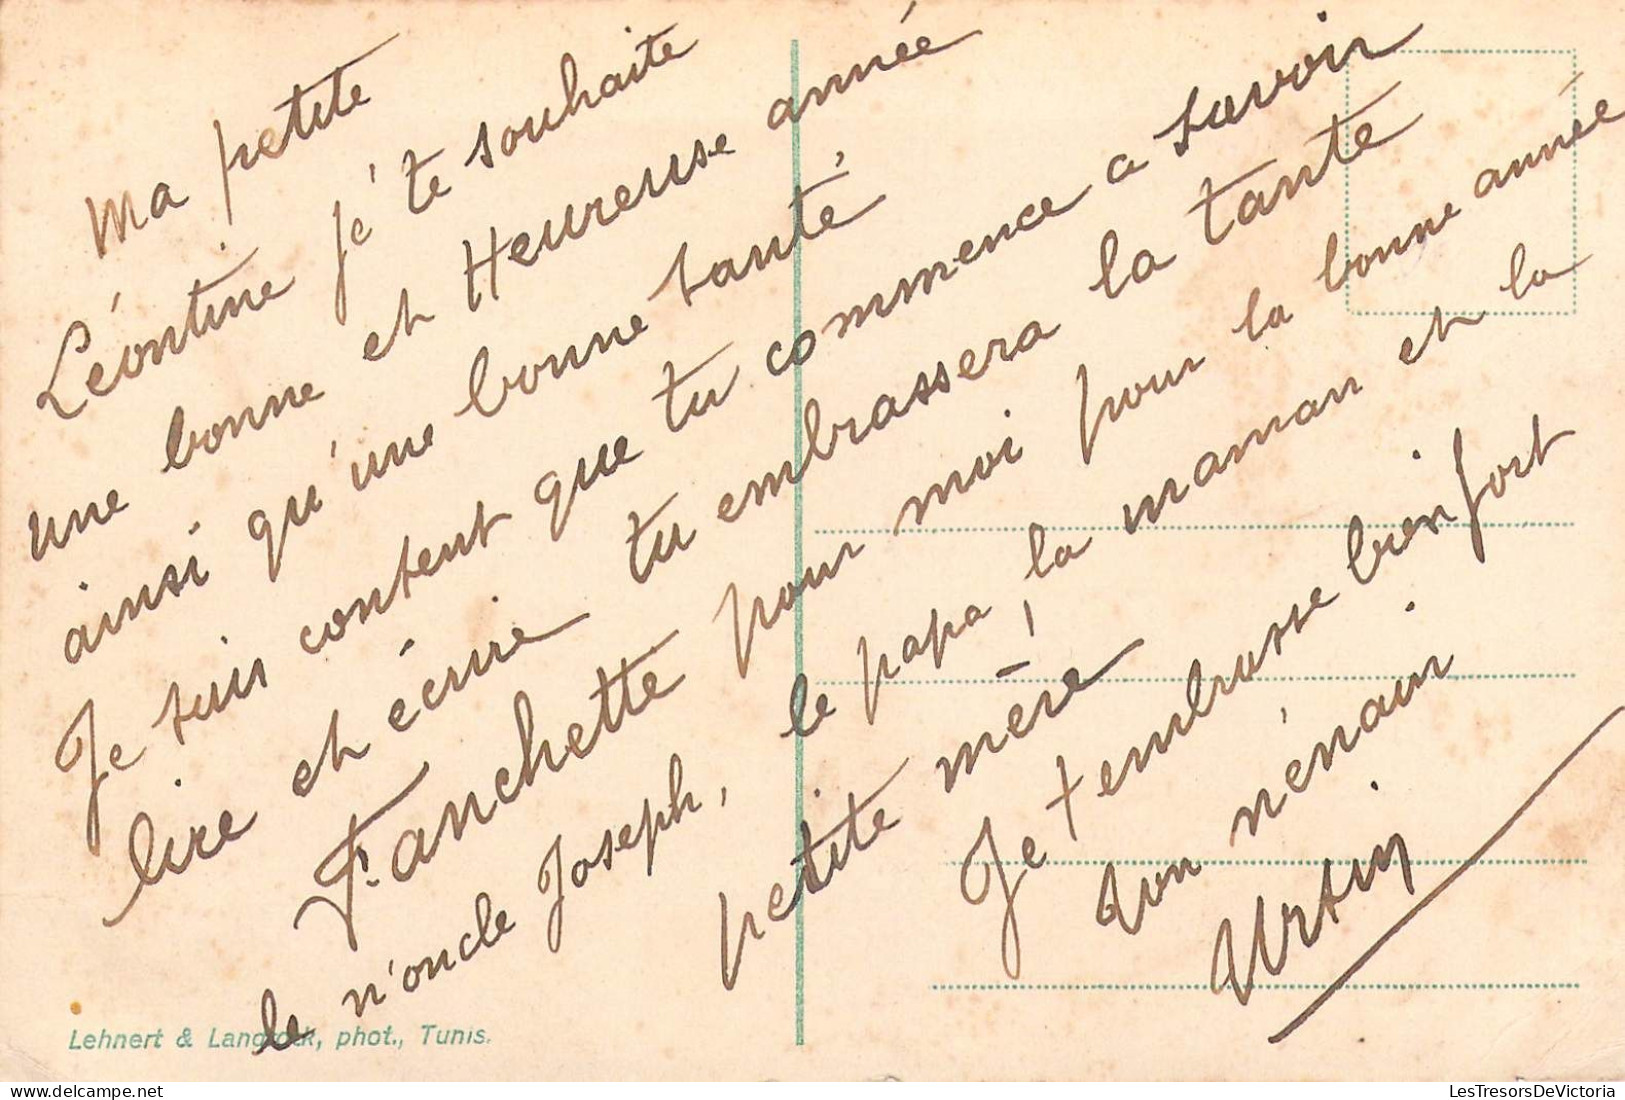 Ma petite
Léontine je te souhaite
une bonne et Heureuse année
ainsi qu'une bonne santé
Je suis content que tu commence a savoir
lire et écrire tu embrassera la tante
Fanchette pour moi pour la bonne année
le n'oncle Joseph, le papa, la maman et la
petite mère
Je t'embrasse bien fort
Ton nénain
Urtin
Lehnert & Landrock, phot., Tunis.
LesTresorsDeVictoria